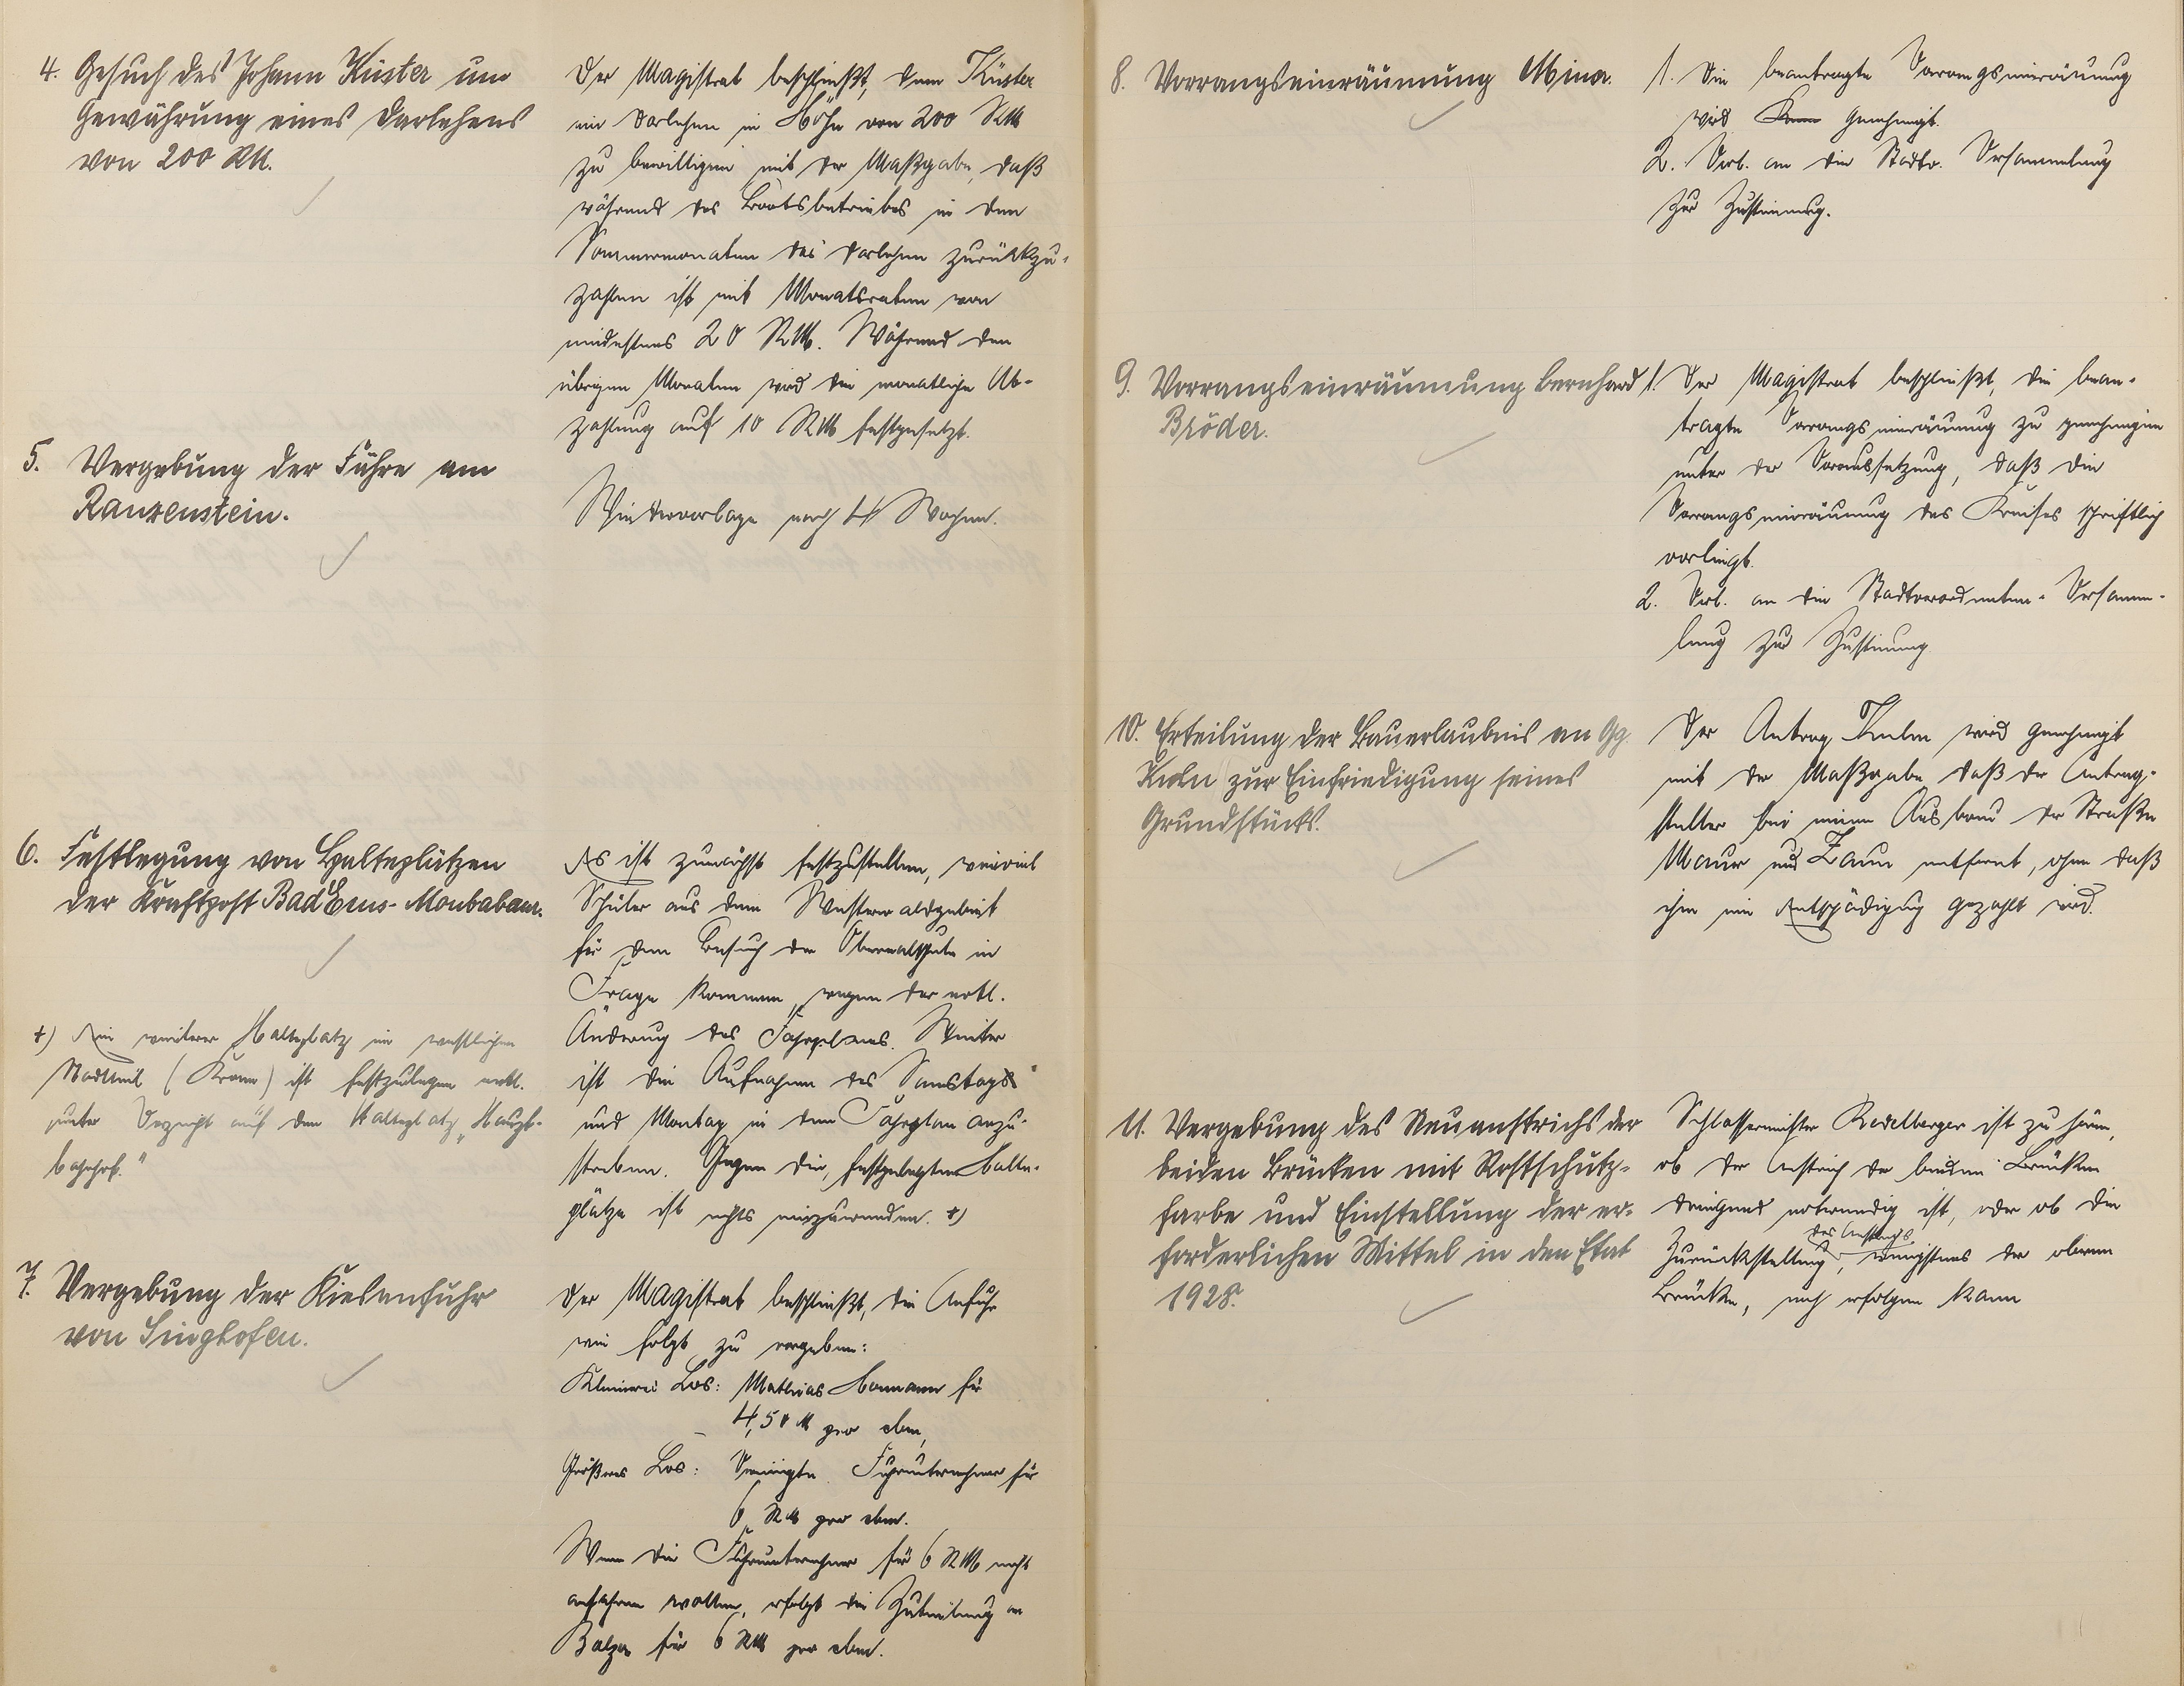 4. Gesuch des Johann Küster um
Gewährung eines Darlehens
von 200 RM.
Der Magistrat beschließt, dem Küster
ein Darlehen in Höhe von 200 RM
zu bewilligen mit der Maßgabe, daß
während des Bootsbetriebes in den
Sommermonaten das Darlehen zurückzu-
zahlen ist mit Monatsraten von
mindestens 20 RM. Während den
übrigen Monaten wird die monatliche Ab-
zahlung auf 10 RM festgesetzt.
5. Vergebung der Fähre am
Ranzenstein.
Wiedervorlage nach 4 Wochen.
6. Festlegung von Halteplätzen
der Kraftpost Bad Ems-Montabaur.
Es ist zunächst festzustellen, wieviel
Schüler aus dem Westerwaldgebiet
für den Besuch der Oberrealschule in
Frage kommen, wegen der evtl.
Änderung des Fahrplanes. Weiter
ist die Aufnahme des Samstags
und Montag in den Fahrplan anzu-
streben. Gegen die festgelegten Halte-
plätze ist nichts einzuwenden. +)
+) Ein weiterer Halteplatz im westlichen
Stadtteil (Krone) ist festzulegen evtl.
unter Verzicht auf den Halteplatz „Haupt-
bahnhof."
7. Vergebung der Kiesanfuhr
von Singhofen.
Der Magistrat beschließt, die Anfuhr
wie folgt zu vergeben:
Kleineres Los: Mathias Hermann für
4,50 M pro cbm,
Größeres Los: Vereinigte Fuhrunternehmer für
6 RM pro cbm.
Wenn die Fuhrunternehmer für 6 RM nicht
anfahren wollen, erfolgt die Zuteilung an
Balzer für 6 RM pro cbm.
8. Vorrangseinräumung Minor.
1. Die beantragte Vorrangseinräumung
wird genehmigt.
2. Verb. an die Stadtv. Versammlung
zur Zustimmung.
9. Vorrangseinräumung Bernhard
Bröder.
1. Der Magistrat beschließt, die bean-
tragte Vorrangseinräumung zu genehmigen
unter der Voraussetzung, daß die
Vorrangseinräumung des Kreises schriftlich
vorliegt.
2. Verb. an die Stadtverordneten-Versamm-
lung zur Zustimmung
10. Erteilung der Bauerlaubnis an Gg.
zur Einfriedigung seines
Grundstücks.
Der Antrag wird genehmigt
mit der Maßgabe daß der Antrag-
steller bei einem Ausbau der Straße
Mauer und Zaun entfernt, ohne daß
ihm eine Entschädigung gezahlt wird.
11. Vergebung des Neuanstrichs der
beiden Brücken mit Rostschutz-
farbe und Einstellung der er-
forderlichen Mittel in den Etat
1928.
Schlossermeister Redelberger ist zu hören,
ob der Anstrich der beiden Brücken
dringend notwendig ist, oder ob die
des Anstrichs
Zurückstellung, wenigstens der oberen
Brücke, noch erfolgen kann